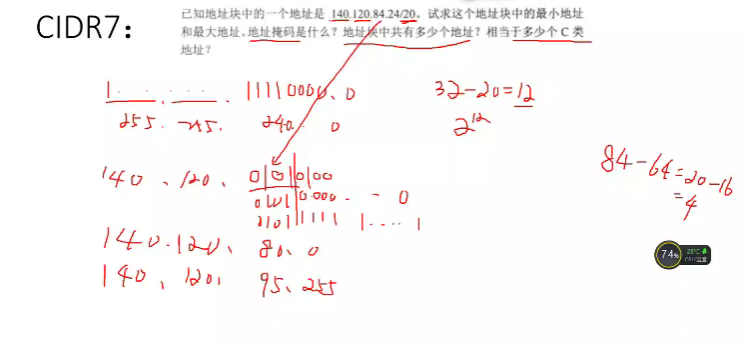 CIDR7：
已知地址块中的一个地址是 140.120.84.24/20。试求这个地址块中的最小地址
和最大地址。地址掩码是什么？地址块中共有多少个地址？相当于多少个 C 类
地址？
1 . . . . . . . 11110000. 0
255. 255. 240. 0
32-20=12
2^12
140 . 120 . 01010100
0101 0000. - - 0
0101 1111 1 . . . . 1
84-64=20-16
=4
140.120. 80. 0
140. 120. 95. 255
74%